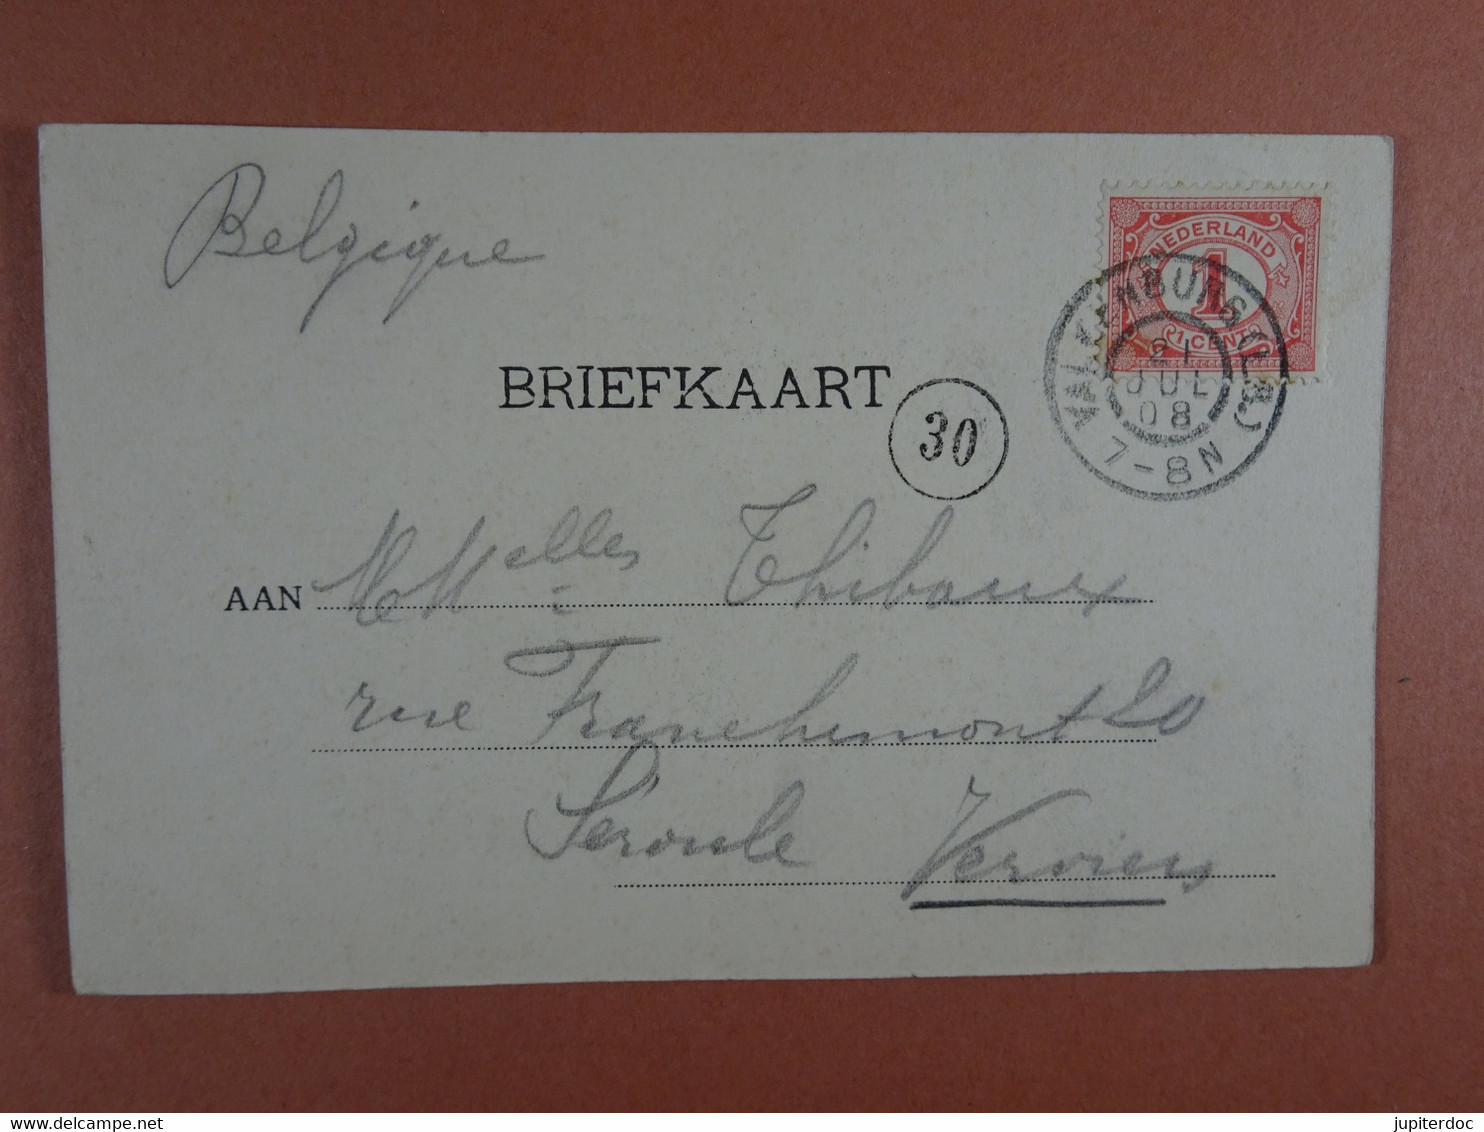 Belgique
NEDERLAND
1
1 CENT
VALKENBURG (LB.)
21
JUL
08
7-8N
BRIEFKAART
30
AAN MMelles Thibaux
rue Franchemont 20
Séroule Verviers
jupiterdoc